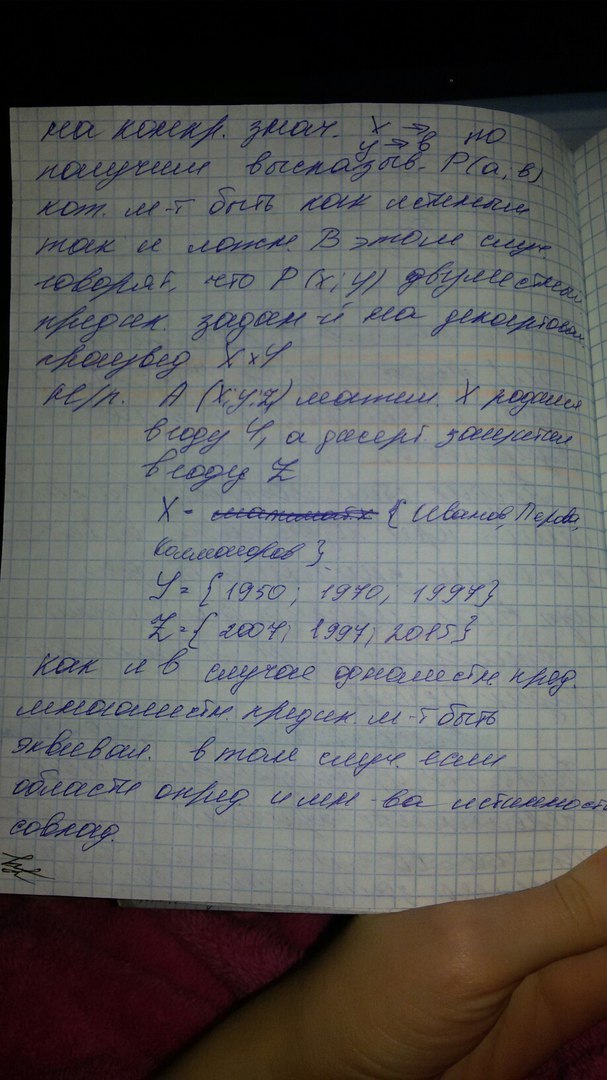 на конкр. знач. x → в, то
y → в
получим высказыв. P(a, в)
кот. м-т быть как истиным
так и ложн. В этом случ.
говорят, что P(x; y) двуместный
предик. задан-й на декартовом
произвед X×Y
Н/п. A (x; y; z) матем. X родился
в году Y, а дисерт. защитил
в году Z
X = {Иванов, Перова,
Колмогоров}
Y = {1950; 1970, 1997}
Z = {2007; 1997; 2015}
как и в случае одноместн. пред.
многоместн. предик. м-т быть
эквивал. в том случ. если
области опред и мн-ва истинность
совпад.